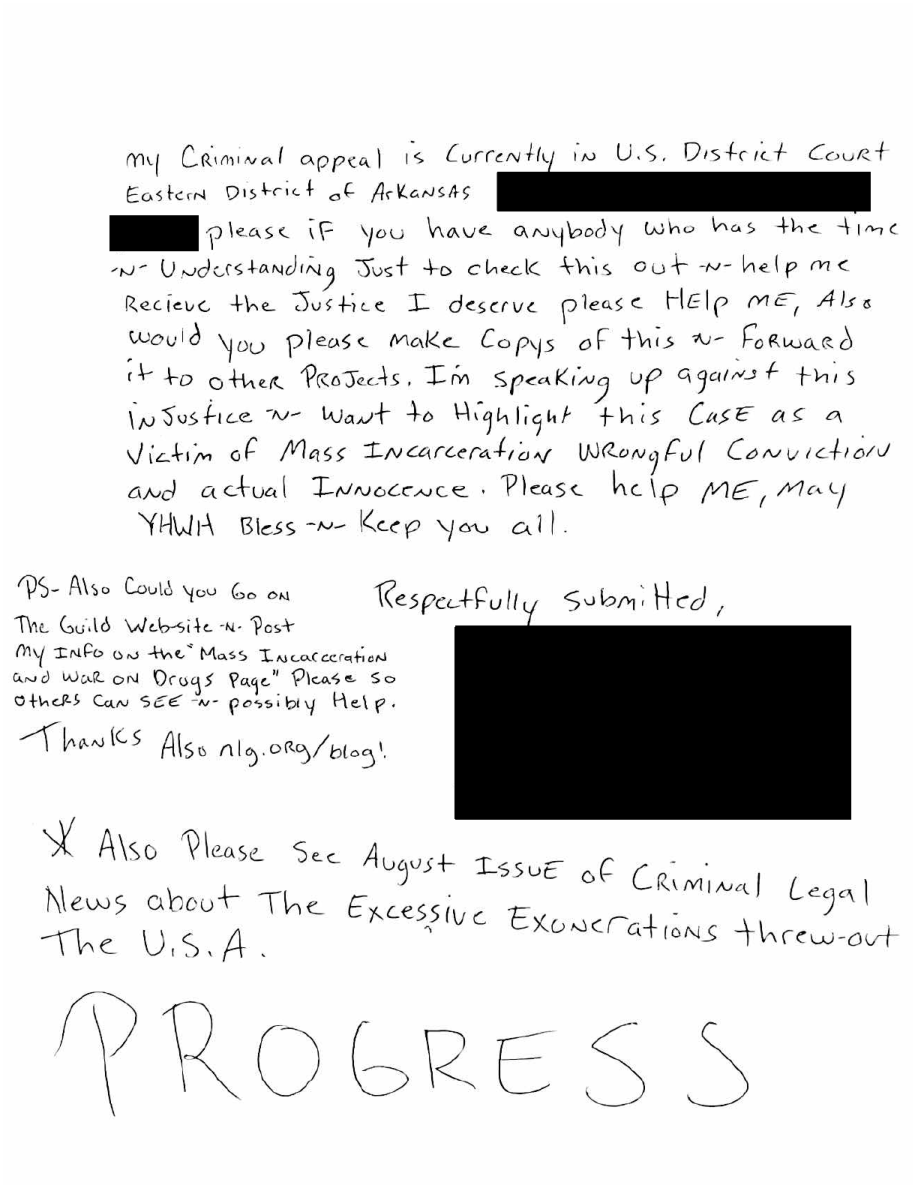 my Criminal appeal is Currently in U.S. District Court
Eastern District of Arkansas
please if you have anybody who has the time
-N- Understanding Just to check this out -N- help me
Recieve the Justice I deserve please HElp ME, Also
would you please make Copys of this -N- Forward
it to other Projects. I'm speaking up against this
inJustice -N- Want to Highlight this CasE as a
Victim of Mass Incarceration Wrongful Conviction
and actual Innocence. Please help ME, May
YHWH Bless -N- Keep you all.
PS- Also Could you Go on
The Guild Web-site -N- Post
my Info on the "Mass Incarceration
and War on Drugs Page" Please so
others Can SEE -N- possibly Help.
Thanks Also nlg.org/blog!
Respectfully Submitted,
* Also Please See August Issue of Criminal Legal
News about The Excessive Exonerations threw-out
The U.S.A.
PROGRESS